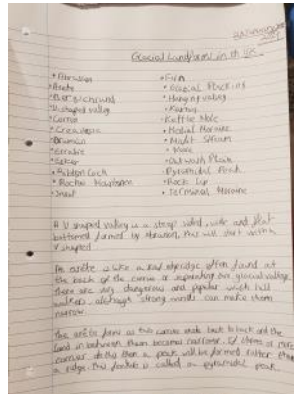 Glacial Landforms in th UK
• Abrasion
• Arete
• Bergschrund
• U shaped valley
• Corrie
• Crevasse
• Drumlin
• Erratic
• Esker
• Ribbon Lack
• Snout
• Firn
• Glacial Plucking
• Hanging valley
• Kettle Hole
• Medial Moraine
• Melt Stream
• Outwash Plain
• Pyramidal Peak
• Rock Lip
• Terminal Moraine
A U shaped valley is a steep sided, wide and flat
bottomed formed by abrasion, this will start with a
V shaped
An arête is like a knife edge ridge often found at
the back of the corrie or separating two glacial valleys.
walkers, although strong winds can make them
narrow.
The arête form as two corries erode back to back and the
land in between them become narrower. If three or more
a ridge. this feature is called a pyramidal peak.